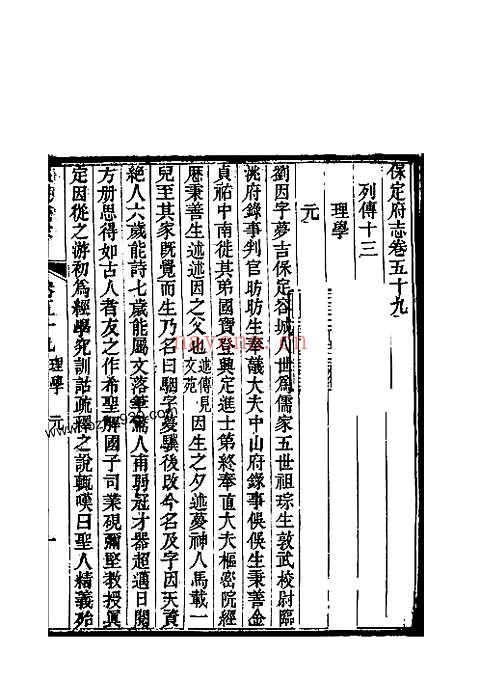 保定府志卷五十九
列傳十三
理學
元
劉因字夢吉保定容城人世爲儒家五世祖琮生敦武校尉臨
洮府錄事判官昉昉生奉議大夫中山府錄事俁俁生秉善金
貞祐中南徙其弟國寶登興定進士第終奉直大夫樞密院經
歷秉善生述述因之父也述傳見文苑因生之夕述夢神人馬載一
兒至其家旣覺而生乃名曰駰字夢驥後改今名及字因天資
絶人六歲能詩七歲能屬文落筆驚人甫弱冠才器超邁日閱
方册思得如古人者友之作希聖解國子司業硯彌堅敎授眞
定因從之游初爲經學究訓詁疏釋之說輒嘆曰聖人精義殆
卷五十九 理學 元 一